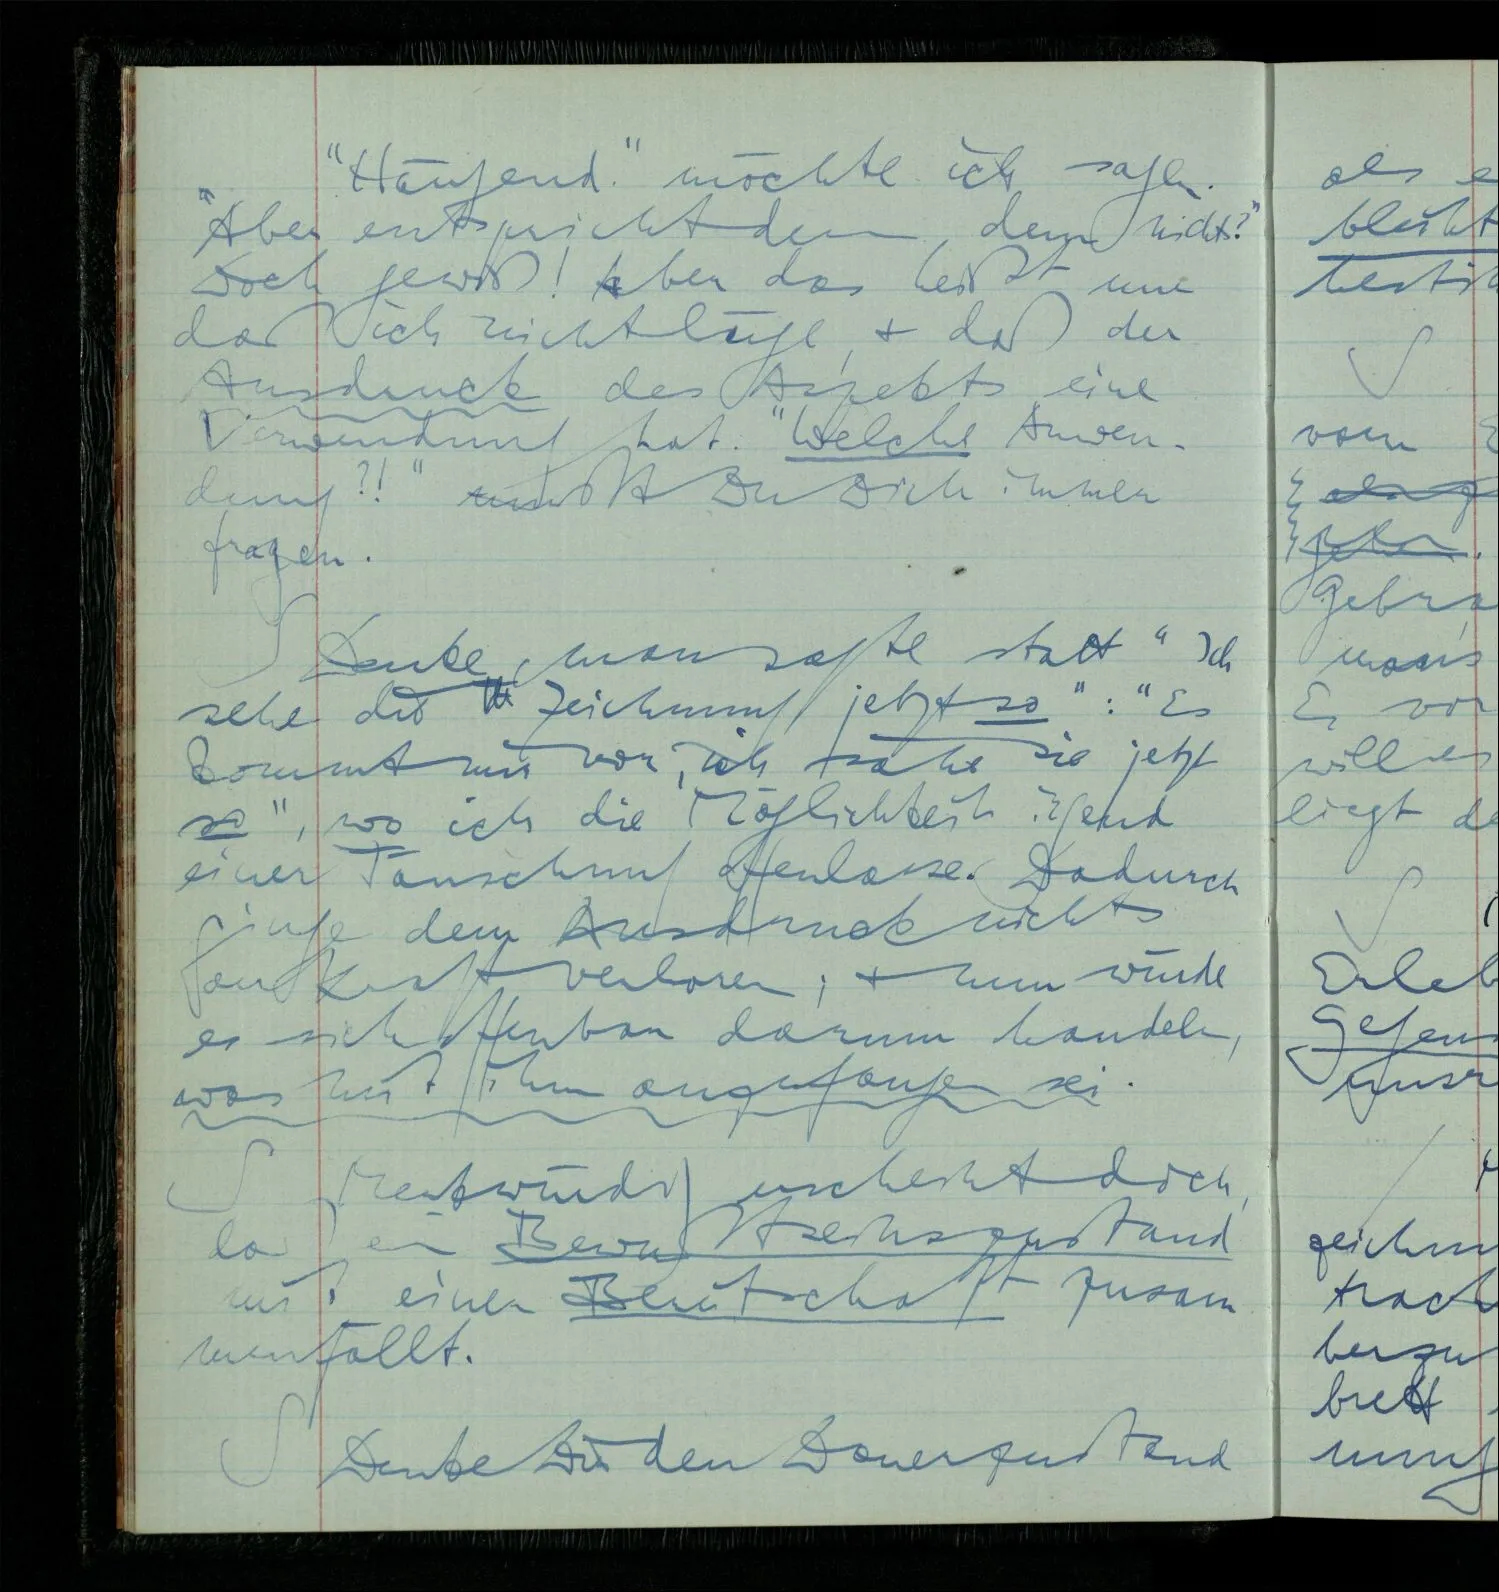 "Hängend." möchte ich sagen.
"Aber entspricht dem denn nichts?"
Doch gewiß! Aber das heißt nur
daß ich nicht lüge, + daß der
Ausdruck des Aspekts eine
Verwendung hat. "Welche Anwen-
dung?!" mußt Du Dich immer
fragen.
Denke, man sagte statt "Ich
sehe die Zeichnung jetzt so": "Es
kommt mir vor, ich sähe sie jetzt
so", wo ich die Möglichkeit irgend
einer Täuschung offenlasse. Dadurch
ginge dem Ausdruck nichts
an Kraft verloren; + nun würde
es sich offenbar darum handeln,
was mit ihm angefangen sei.
Merkwürdig erscheint doch,
daß ein Bewußtseinszustand
mit einer Bereitschaft zusam
menfällt.
Denke Dir den Dauerzustand
als
bleibt
vom
Gebra
Es vor
will es
liegt de
Erleb
Gegens
unsr
zeichnu
tracht
brett
nung